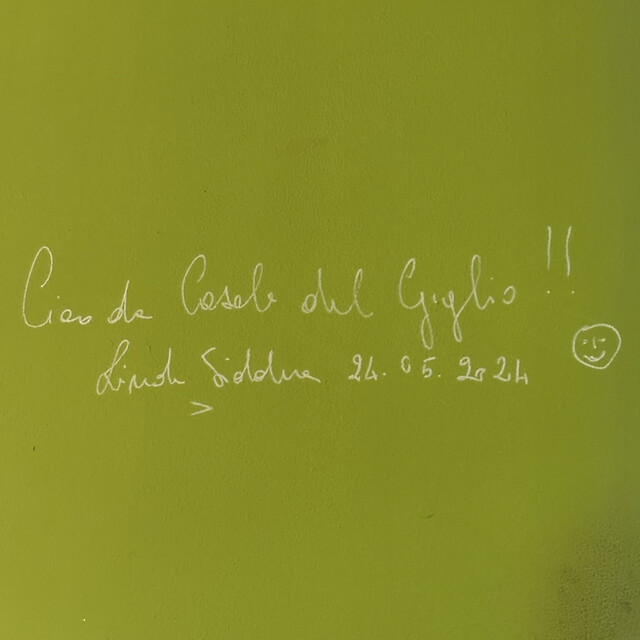 Ciao da Casale del Giglio !!
Linda 24.05.2024